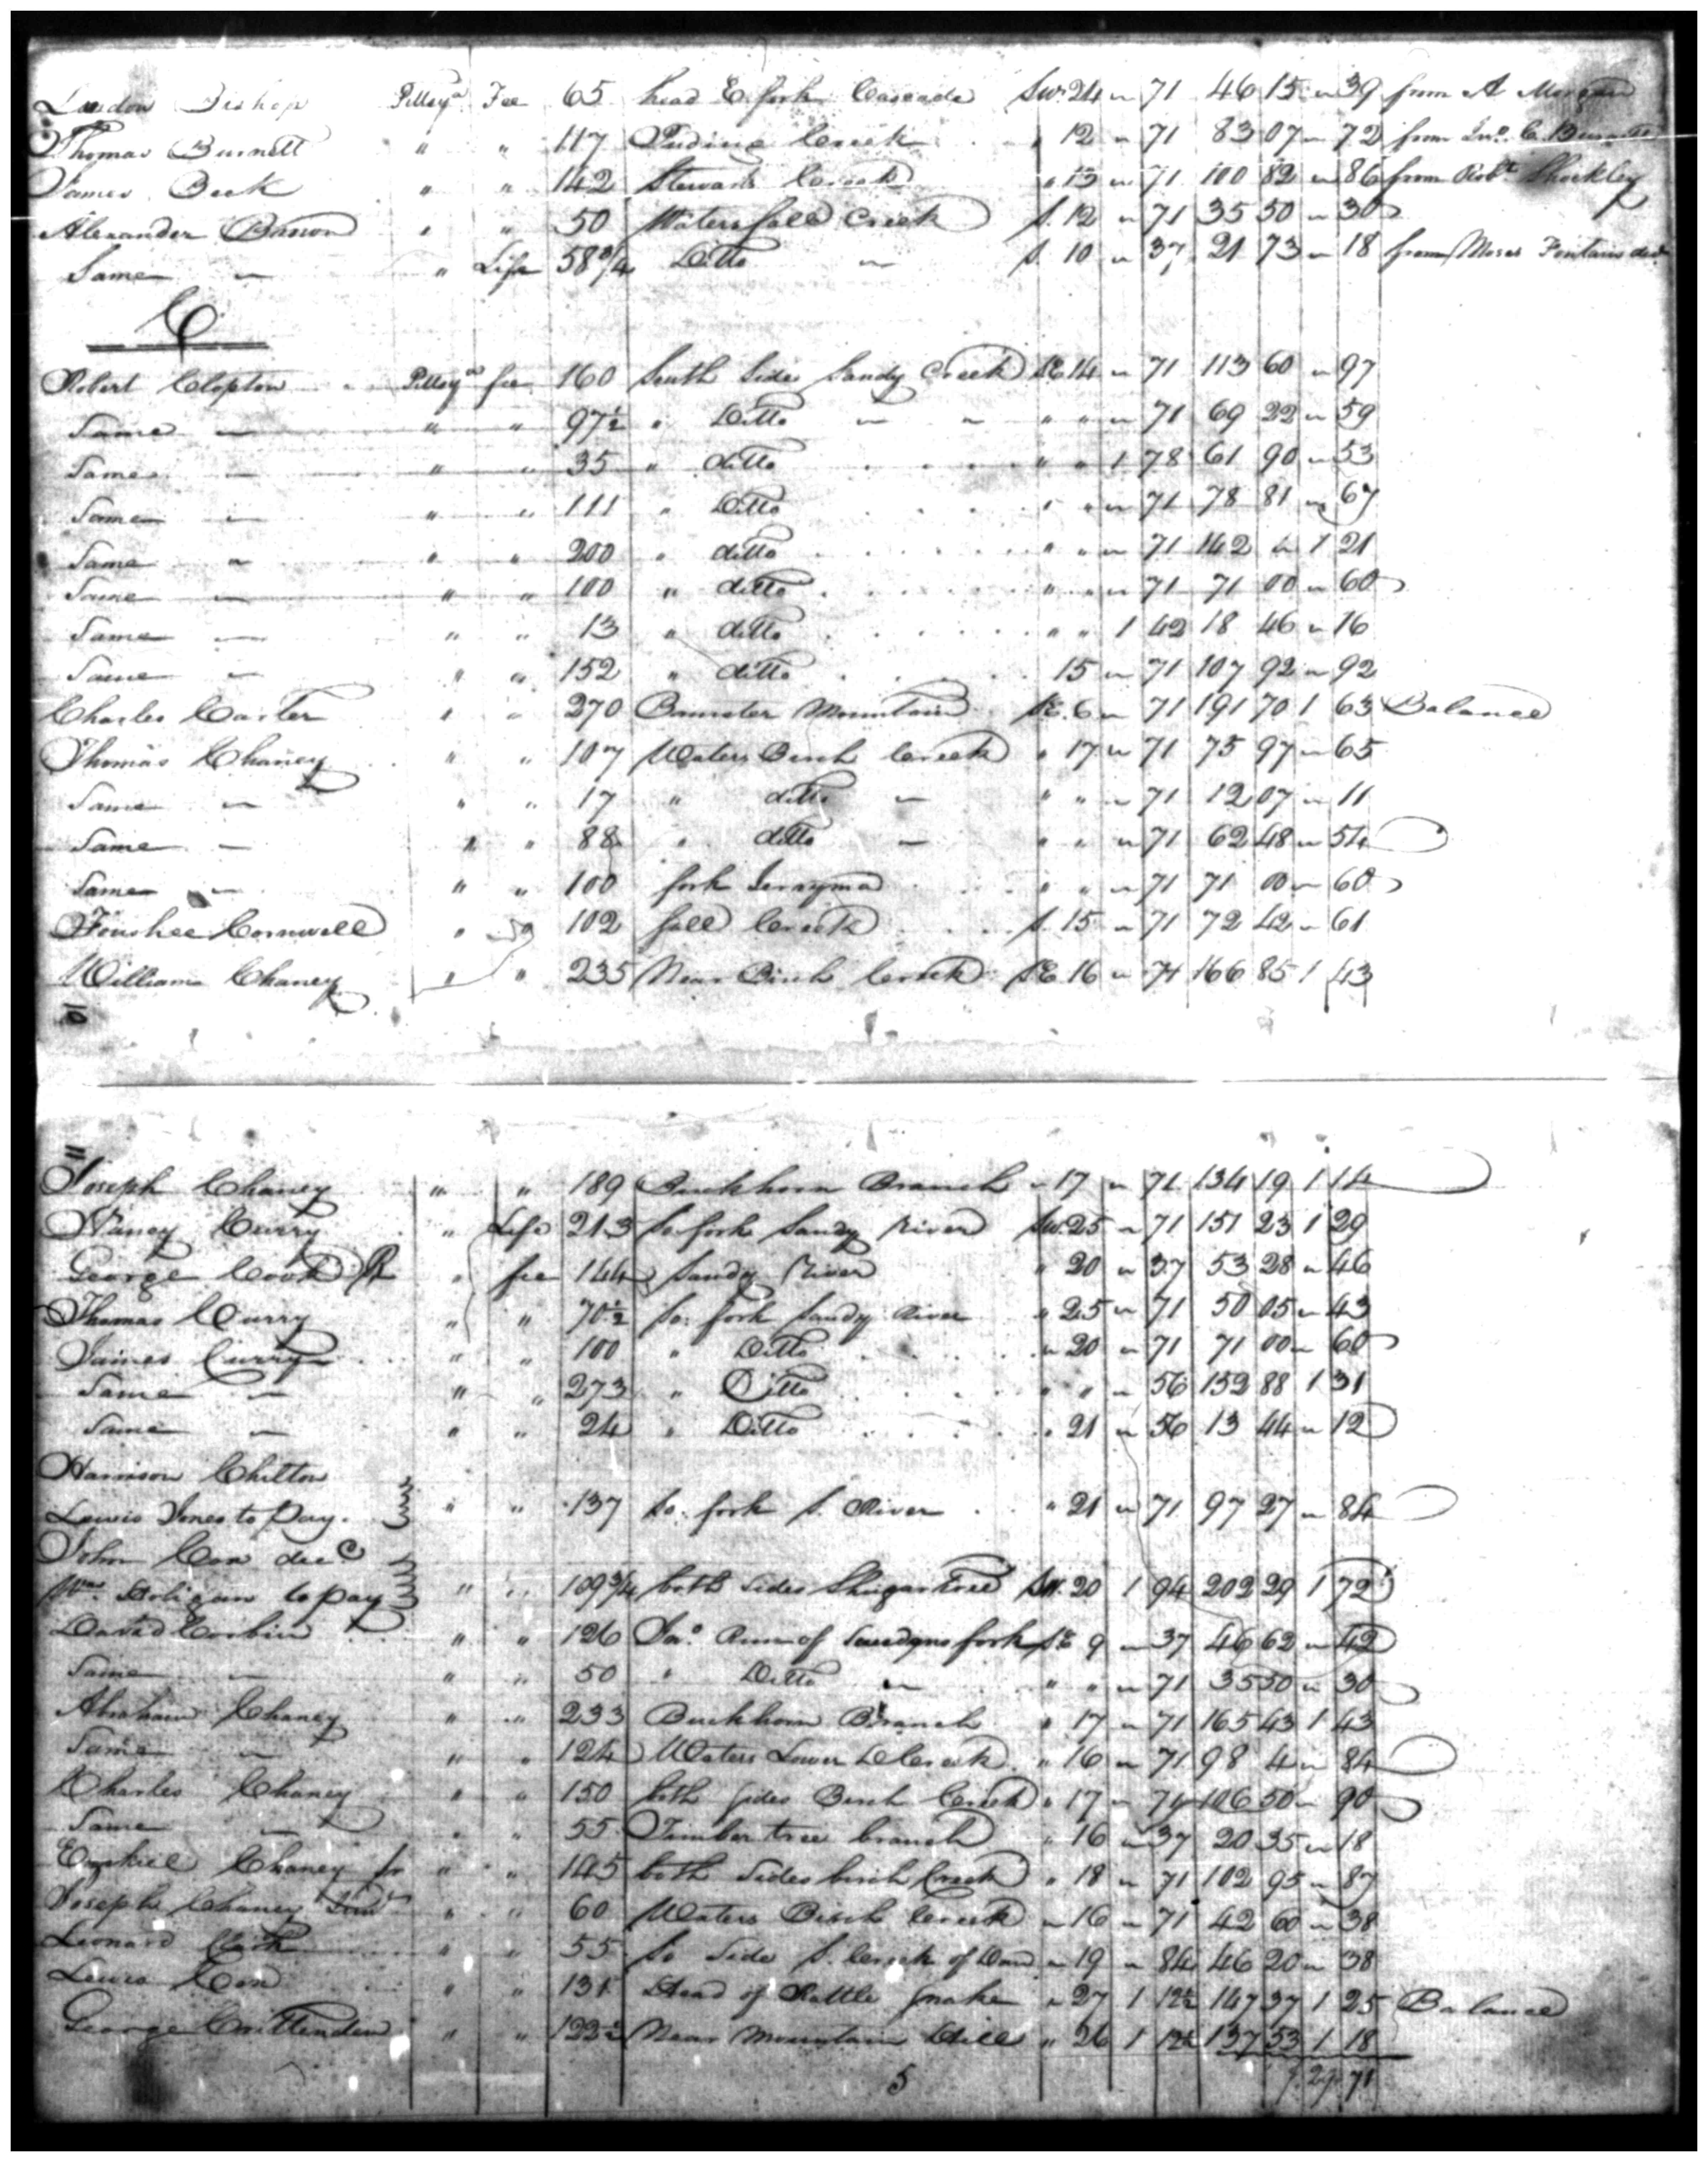 Bishop Pittsya Fee 65 head E. fork Cascade Sw. 24 " 71 46 15 " 39 from A Morgan
Thomas Burnett " " 117 Pudding Creek " 12 " 71 83 07 " 72 from Jno. C. Burnett
James Beck " " 142 Stewarts Creek " 13 " 71 100 82 " 86 from Robt. Shockley
Alexander Barron " " 50 Waters fall Creek S. 12 " 71 35 50 " 30
Same " " Life 58 3/4 Ditto " S. 10 " 37 21 73 " 18 from Moses Fontain decd
C
Robert Clopton Pittsya fee 160 South Side Sandy Creek SE 14 " 71 113 60 " 97
Same " " " 97½ " Ditto " " " " " 71 69 22 " 59
Same " " " 35 " ditto " " 1 78 61 90 " 53
Same " " " 111 " Ditto " " " 71 78 81 " 67
Same " " " 200 " ditto " " " 71 142 " 1 21
Same " " " 100 " ditto " " " 71 71 00 " 60
Same " " " 13 " ditto " " 1 42 18 46 " 16
Same " " " 152 " ditto 15 " 71 107 92 " 92
Charles Carter " " 270 Banister Mountain SE. 6 " 71 191 70 1 63 Balance
Thomas Chaney " " 107 Waters Birch Creek " 17 " 71 75 97 " 65
Same " " " 17 " ditto " " " " 71 12 07 " 11
Same " " " 88 " ditto " " " " 71 62 48 " 54
Same " " " 100 fork " " " 71 71 00 " 60
Foushee Cornwell " " 102 fall Creek S. 15 " 71 72 42 " 61
William Chaney " " 235 Near Birch Creek SE 16 " 71 166 85 1 43
10
11
Joseph Chaney " " 189 Buckhorn Branch " 17 " 71 134 19 1 14
Nancy Curry " Life 213 So. fork Sandy River Sw. 25 " 71 151 23 1 29
George Cook R " fee 144 Sandy River " 20 " 37 53 28 " 46
Thomas Curry " " 70½ So. fork Sandy River " 25 " 71 50 05 " 43
James Curry " " 100 " Ditto " 20 " 71 71 00 " 60
Same " " " 273 " Ditto " " " 56 152 88 1 31
Same " " " 24 " Ditto " 21 " 56 13 44 " 12
Harrison Chilton
Lewis Jones to Pay. " " 137 So. fork S. River " 21 " 71 97 27 " 84
John Cox decd
Wm. to pay " " 109 3/4 both Sides Shugar tree SW. 20 1 94 202 29 1 72
David Corbin " " 126 Run of fork SE 9 " 37 46 62 " 42
Same " " " 50 " Ditto " " " " 71 35 50 " 30
Abraham Chaney " " 233 Buckhorn Branch " 17 " 71 165 43 1 43
Same " " " 124 Waters Lower D Creek " 16 " 71 98 4 " 84
Charles Chaney " " 150 both sides Birch Creek " 17 " 71 106 50 " 90
Same " " " 55 Timber tree branch " 16 " 37 20 35 " 18
Ezekiel Chaney Jr " " 145 both Sides birch Creek " 18 " 71 102 95 " 87
Joseph Chaney Junr " " 60 Waters Birch Creek " 16 " 71 42 60 " 38
Leonard Clark " " 55 So Side S. Creek of Dan " 19 " 84 46 20 " 38
Lewis Cox " " 131 Head of Rattle Snake " 27 1 12½ 147 37 1 25 Balance
George Crittenden " " 122½ Near Mountain Hill " 26 1 12½ 137 53 1 18
5 29 71